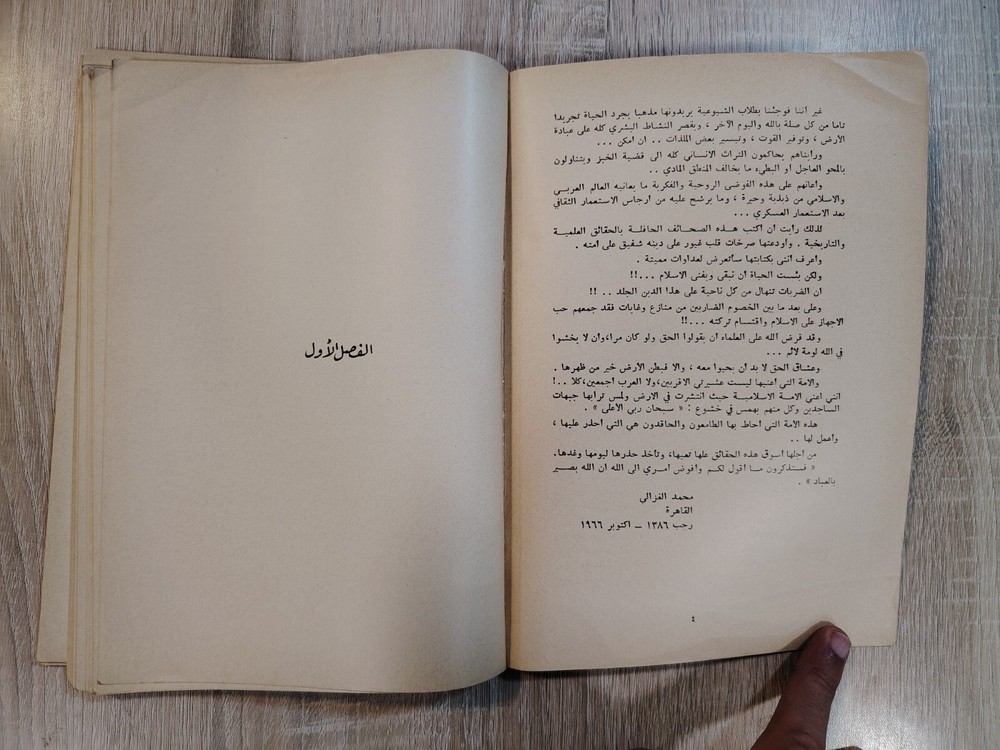 غير اننا فوجئنا بطلاب الشيوعية يريدونها مذهبا يجرد الحياة تجريدا
تاما من كل صلة بالله واليوم الآخر ، ويقصر النشاط البشري كله على عبادة
الأرض ، وتوفير القوت ، وتيسير بعض الملذات .. ان امكن ...
ورأيناهم يحاكمون التراث الانساني كله الى قضية الخبز ويتناولون
بالمحو العاجل أو البطيء ما يخالف المنطق المادي ..
وأعانهم على هذه الفوضى الروحية والفكرية ما يعانيه العالم العربي
والاسلامي من ذبذبة وحيرة ، وما يرشح عليه من ارجاس الاستعمار الثقافي
بعد الاستعمار العسكري ...
لذلك رأيت ان اكتب هذه الصحائف الحافلة بالحقائق العلمية
والتاريخية . وأودعتها صرخات قلب غيور على دينه شفيق على امته .
واعرف انني بكتابتها سأتعرض لعداوات مميتة .
ولكن بئست الحياة ان نبقى ويفنى الاسلام ...!!
ان الضربات تنهال من كل ناحية على هذا الدين الجلد .. !!
وعلى بعد ما بين الخصوم الضاربين من منازع وغايات فقد جمعهم حب
الاجهاز على الاسلام واقتسام تركته ...!!
وقد فرض الله على العلماء ان يقولوا الحق ولو كان مرا،وان لا يخشوا
في الله لومة لائم ...
وعشاق الحق لا بد ان يحيوا معه ، والا فبطن الأرض خير من ظهرها .
والامة التي اعنيها ليست عشيرتي الاقربين،ولا العرب اجمعين،كلا ..!
انني اعني الامة الاسلامية حيث انتشرت في الارض ولمس ترابها جبهات
الساجدين وكل منهم يهمس في خشوع : « سبحان ربي الأعلى » .
هذه الامة التي احاط بها الطامعون والحاقدون هي التي احذر عليها ،
وأعمل لها ..
من اجلها أسوق هذه الحقائق علها تعيها، وتأخذ حذرها ليومها وغدها.
« فستذكرون ما أقول لكم وأفوض امري الى الله ان الله بصير
بالعباد » .
محمد الغزالي
القاهرة
رجب ١٣٨٦ – اكتوبر ١٩٦٦
٤
الفصل الأول